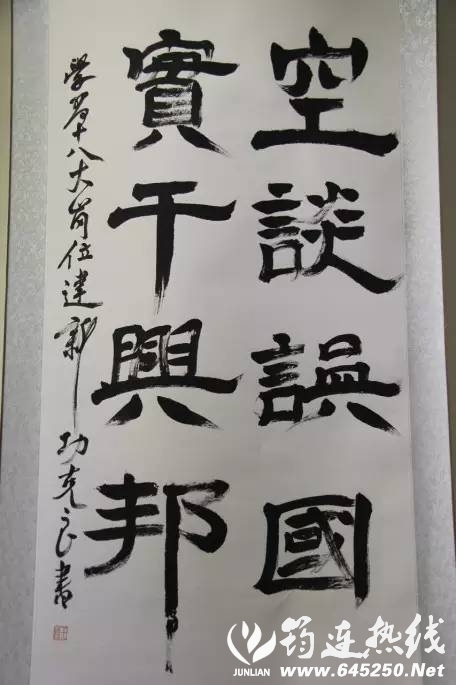 空談誤國
實干興邦
学習十八大岗位建新功克良書
筠连热线
JUNLIAN
www.645250.Net